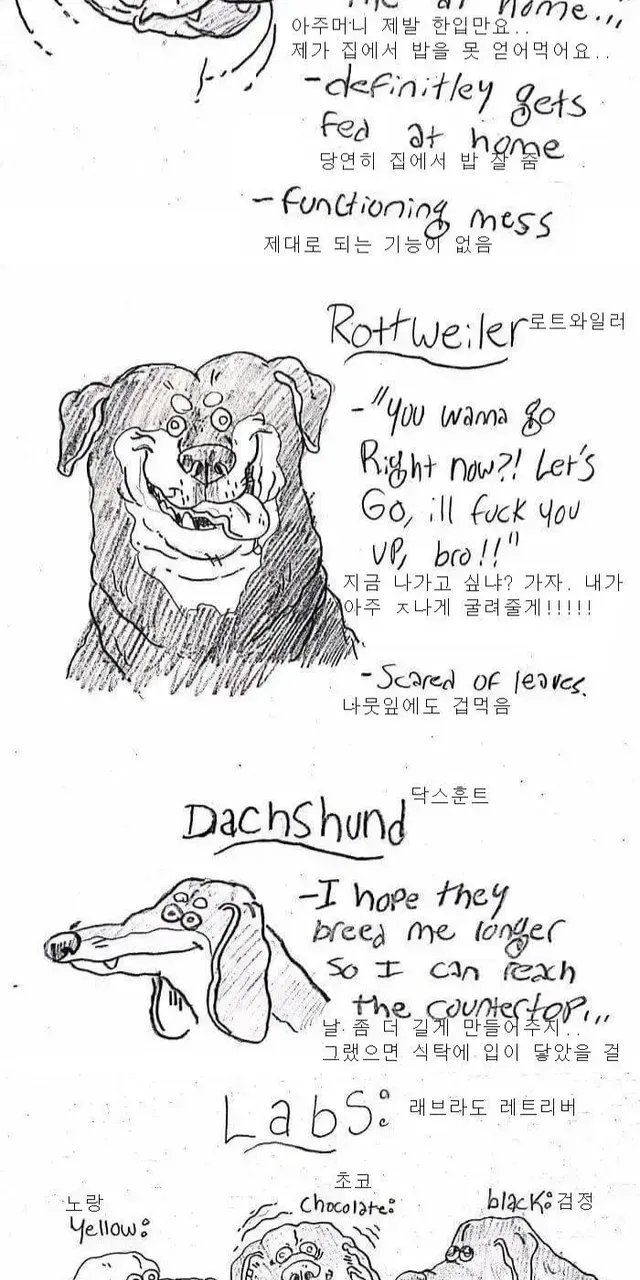 me at home...
아주머니 제발 한입만요..
제가 집에서 밥을 못 얻어먹어요..
-definitley gets
fed at home
당연히 집에서 밥 잘 줌
-functioning mess
제대로 되는 기능이 없음
Rottweiler 로트와일러
-"you wanna go
Right now?! Let's
Go, ill fuck you
UP, bro!!"
지금 나가고 싶냐? 가자. 내가
아주 ㅈ나게 굴려줄게!!!!!
-Scared of leaves.
나뭇잎에도 겁먹음
Dachshund 닥스훈트
-I hope they
breed me longer
so I can reach
the countertop...
날 좀 더 길게 만들어주지..
그랬으면 식탁에 입이 닿았을 걸
Labs: 래브라도 레트리버
노랑
Yellow:
초코
Chocolate:
black: 검정